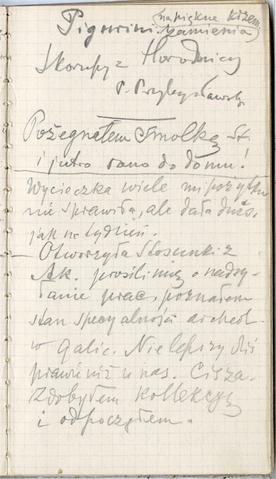 na piękne Krzem
Pigorini kamienia
Skorupy z Horodnicy
P. Przybysławski
Pożegnałem Smolkę St.
i jutro rano do domu!
Wycieczka wiele mi pożytku
nie sprawiła, ale dała dość,
jak na tydzień.
Otworzyła stosunki z
Ak. prosiliśmy o nadsy-
łanie prac, poznałem
stan specyalności archeol.
w Galic. Nie lepszy dziś
prawie niż u nas. Cisza.
Zdobyłem kollekcyę
i odpocząłem.